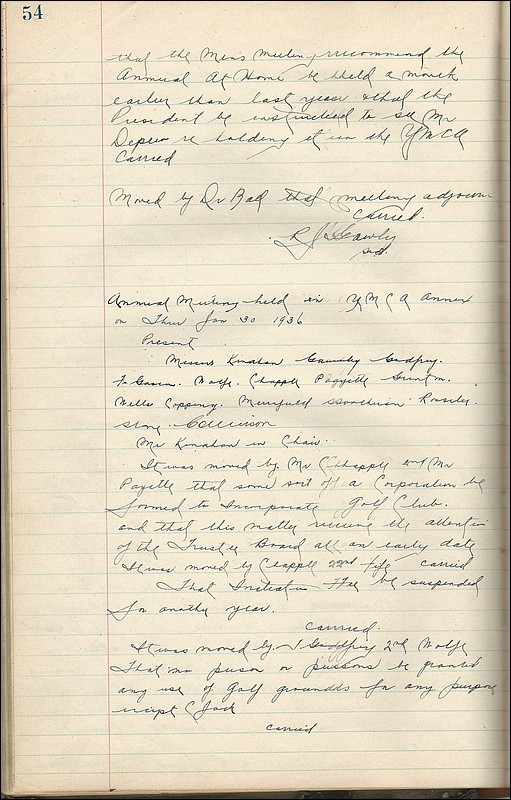 54
that the Mens Meeting recommend the
Annual At Home be held a month
earlier than last year & that the
President be instructed to see Mr
Depew re holding it in the YMCA
Carried
Moved by Dr Bad that meeting adjourn
Carried.
R J
Annual Meeting held in YMCA Annex
on Thur Jan 30 1936
Present
Messrs Kinahan Gawsby Godfrey.
Wolfe. Chapple Payette
Wells Merryfield
Stone
Mr Kinahan in Chair.
It was moved by Mr Chapple and Mr
Payette that some sort of a Corporation be
formed to Incorporate Golf Club.
and that this matter receive the attention
of the Trustee Board at an early date
It was moved by Chapple 2nd Fife carried
That Initiation Fee be suspended
for another year.
carried.
It was moved by Godfrey 2nd Wolfe
That no person or persons be granted
any use of Golf grounds for any purpose
except Golf
carried